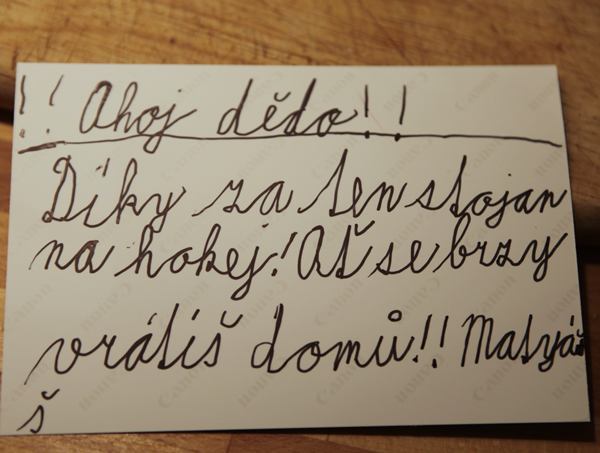 !! Ahoj dědo!!
Díky za ten stojan
na hokej! Ať se brzy
vrátíš domů!! Matyáš
š